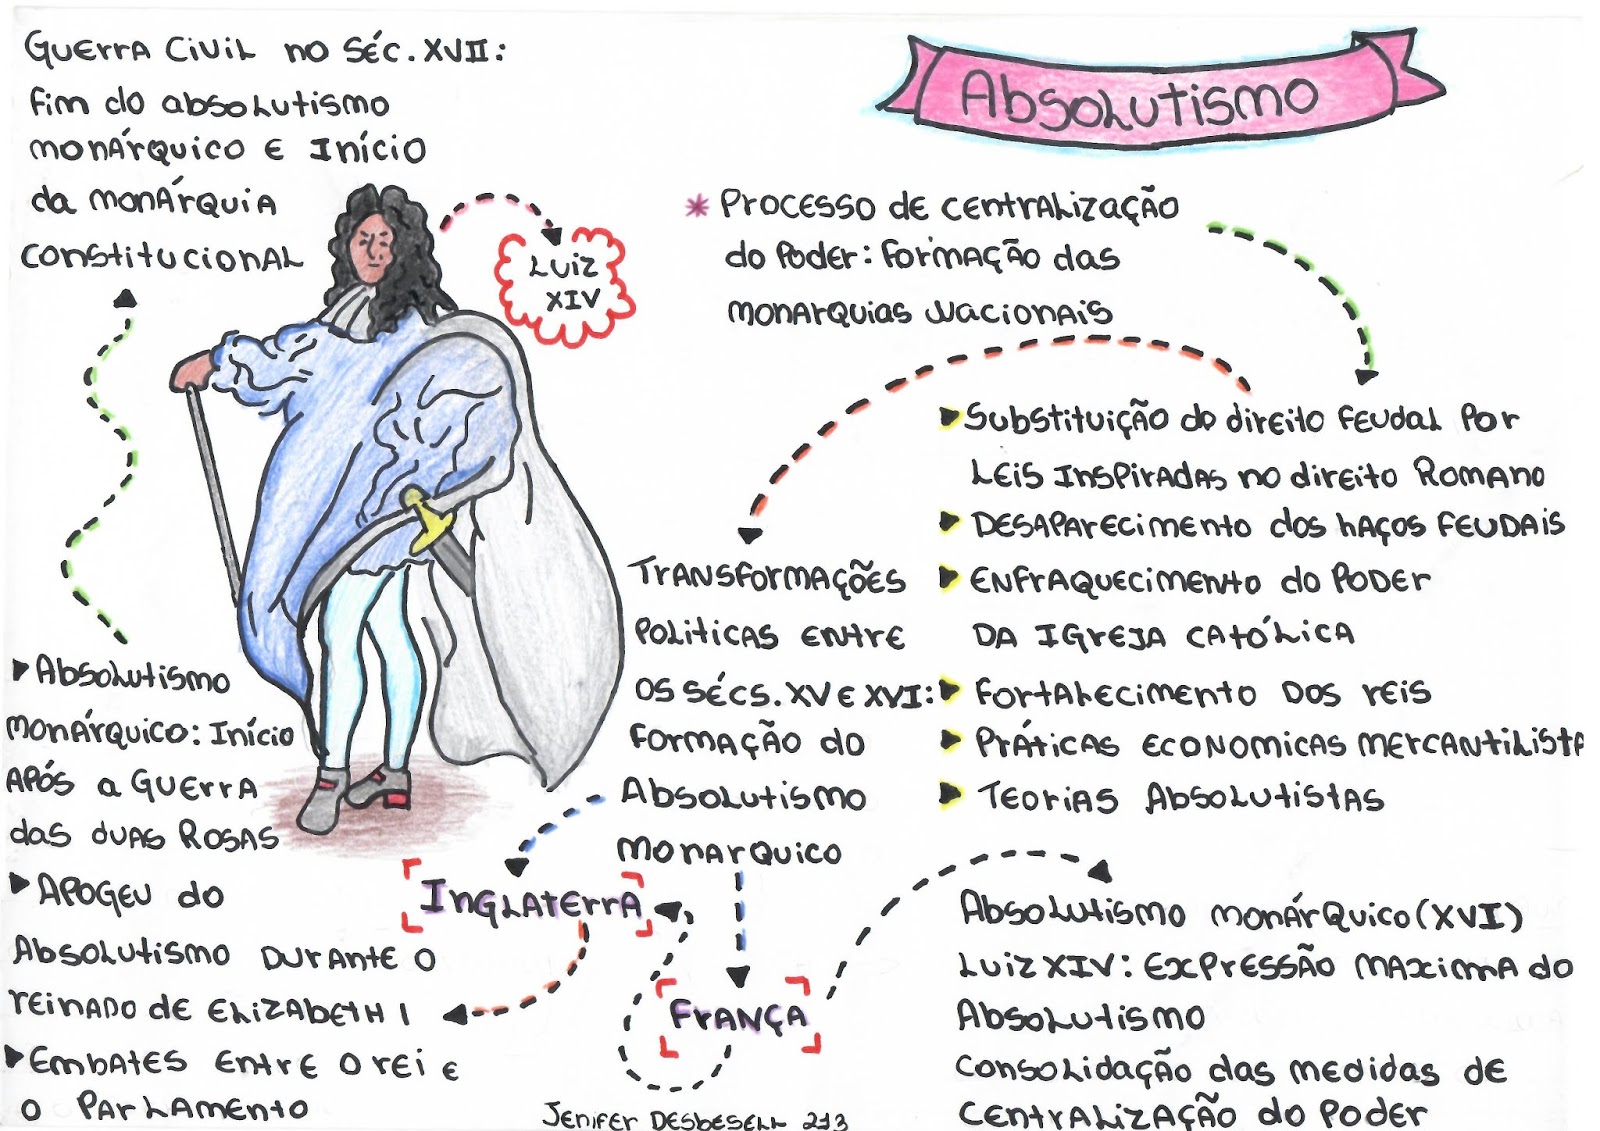 Absolutismo
* Processo de centralização
do Poder: Formação das
monarquias Nacionais
Substituição do direito Feudal Por
Leis Inspiradas no direito Romano
Desaparecimento dos haços Feudais
Enfraquecimento do Poder
da Igreja Católica
Fortalecimento dos reis
Práticas economicas mercantilista
Teorias Absolutistas
Transformações
Politicas entre
os sécs. XV e XVI:
Formação do
Absolutismo
monarquico
Inglaterra
França
Absolutismo monárquico (XVI)
Luiz XIV: Expressão maxima do
Absolutismo
Consolidação das medidas de
centralização do Poder
Absolutismo
monárquico: Início
após a Guerra
das duas Rosas
Apogeu do
Absolutismo durante o
reinado de Elizabeth I
Embates entre o rei e
o Parlamento
Guerra Civil no Séc. XVII:
fim do absolutismo
monárquico e Início
da monárquia
constitucional
Luiz
XIV
Jenifer Desbesell 213